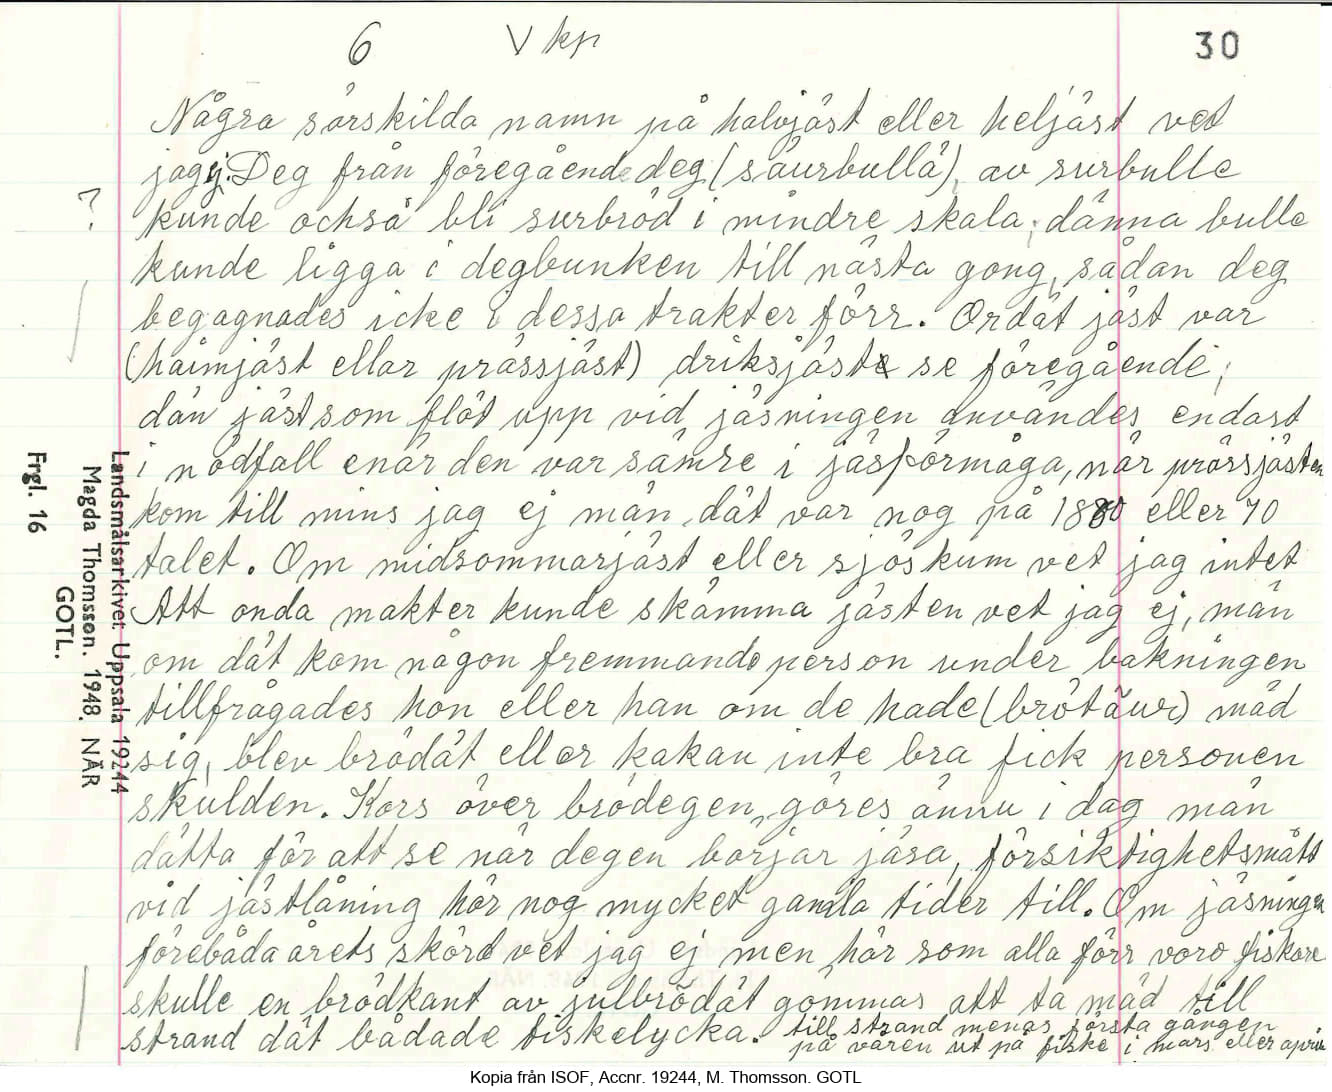 6 V kp 30
Några särskilda namn på halvjäst eller heljäst vet
jag ej. Deg från föregående deg (säurbullä), av surbulle
? kunde också bli surbröd i mindre skala, dänna bulle
kunde ligga i degbunken till nästa gong, sådan deg
begagnades icke i dessa trakter förr. Ordät jäst var
(haimjäst ellar prässjäst) driksjäst se föregående,
dän jäst som flöt upp vid jäsningen användes endast
i nödfall enär den var sämre i jäsförmåga, när prässjästen
kom till mins jag ej män dät var nog på 1880 eller 70
talet. Om midsommarjäst eller sjöskum vet jag intet
Att onda makter kunde skämma jästen vet jag ej, män
om dät kom någon fremmande person under bakningen
tillfrågades hon eller han om de hade (brötäur) mäd
sig, blev brödät eller kakan inte bra fick personen
skulden. Kors över brödegen göres ännu i dag män
dätta för att se när degen börjar jäsa, försiktighetsmått
vid jästlåning hör nog mycket gamla tider till. Om jäsningen
förebåda årets skörd vet jag ej men här som alla förr voro fiskare
skulle en brödkant av julbrödät gömmas att ta mäd till
strand dät bådade fiskelycka. till strand menas första gången
på våren ut på fiske i mars eller april
Landsmålsarkivet Uppsala 19244
Magda Thomsson. 1948. NÄR
GOTL.
Frgl. 16
Kopia från ISOF, Accnr. 19244, M. Thomsson. GOTL